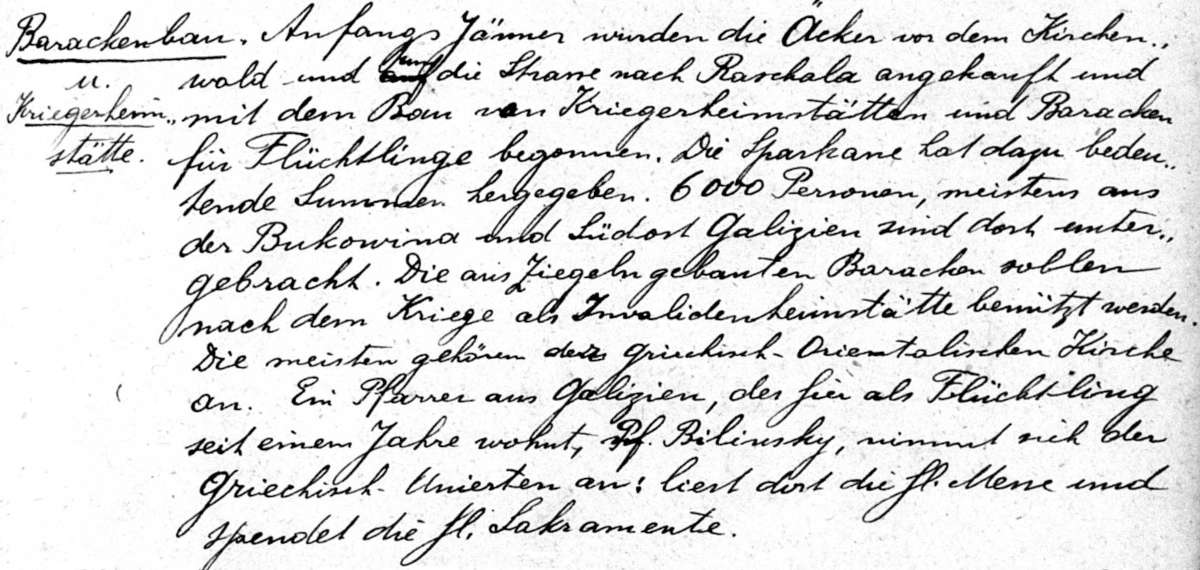 Barackenbau. Anfangs Jänner wurden die Äcker vor dem Kirchen„
u. wald und rund die Strasse nach Raschala angekauft und
Kriegerheim„ mit dem Bau von Kriegerheimstätten und Baracken
stätte. für Flüchtlinge begonnen. Die Sparkasse hat dazu bedeu„
tende Summen hergegeben. 6000 Personen, meistens aus
der Bukowina und Südost Galizien sind dort unter„
gebracht. Die aus Ziegeln gebauten Baracken sollen
nach dem Kriege als Invalidenheimstätte benützt werden.
Die meisten gehören der griechisch-Orientalischen Kirche
an. Ein Pfarrer aus Galizien, der hier als Flüchtling
seit einem Jahre wohnt, Pf. Bilinsky, nimmt sich der
Griechisch-Unierten an: liest dort die hl. Messe und
spendet die hl. Sakramente.